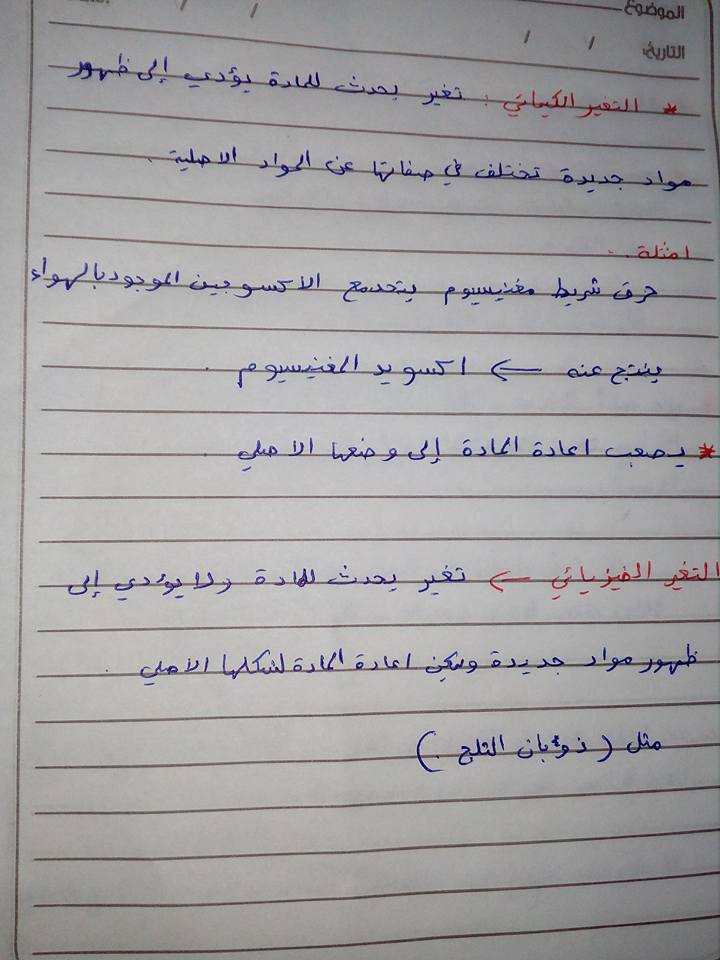 الموضوع
التاريخ:
* التغير الكيمائي : تغير يحدث للمادة يؤدي إلى ظهور
مواد جديدة تختلف في صفاتها عن المواد الاصلية .
امثلة ..
حرق شريط مغنيسيوم يتحد مع الاكسوجين الموجود بالهواء
ينتج عنه ← اكسويد المغنيسيوم .
* يصعب اعادة المادة إلى وضعها الاصلي .
التغير الفيزيائي ← تغير يحدث للمادة ولا يؤدي إلى
ظهور مواد جديدة ويمكن اعادة المادة لشكلها الاصلي .
مثل ( ذوبان الثلج . )